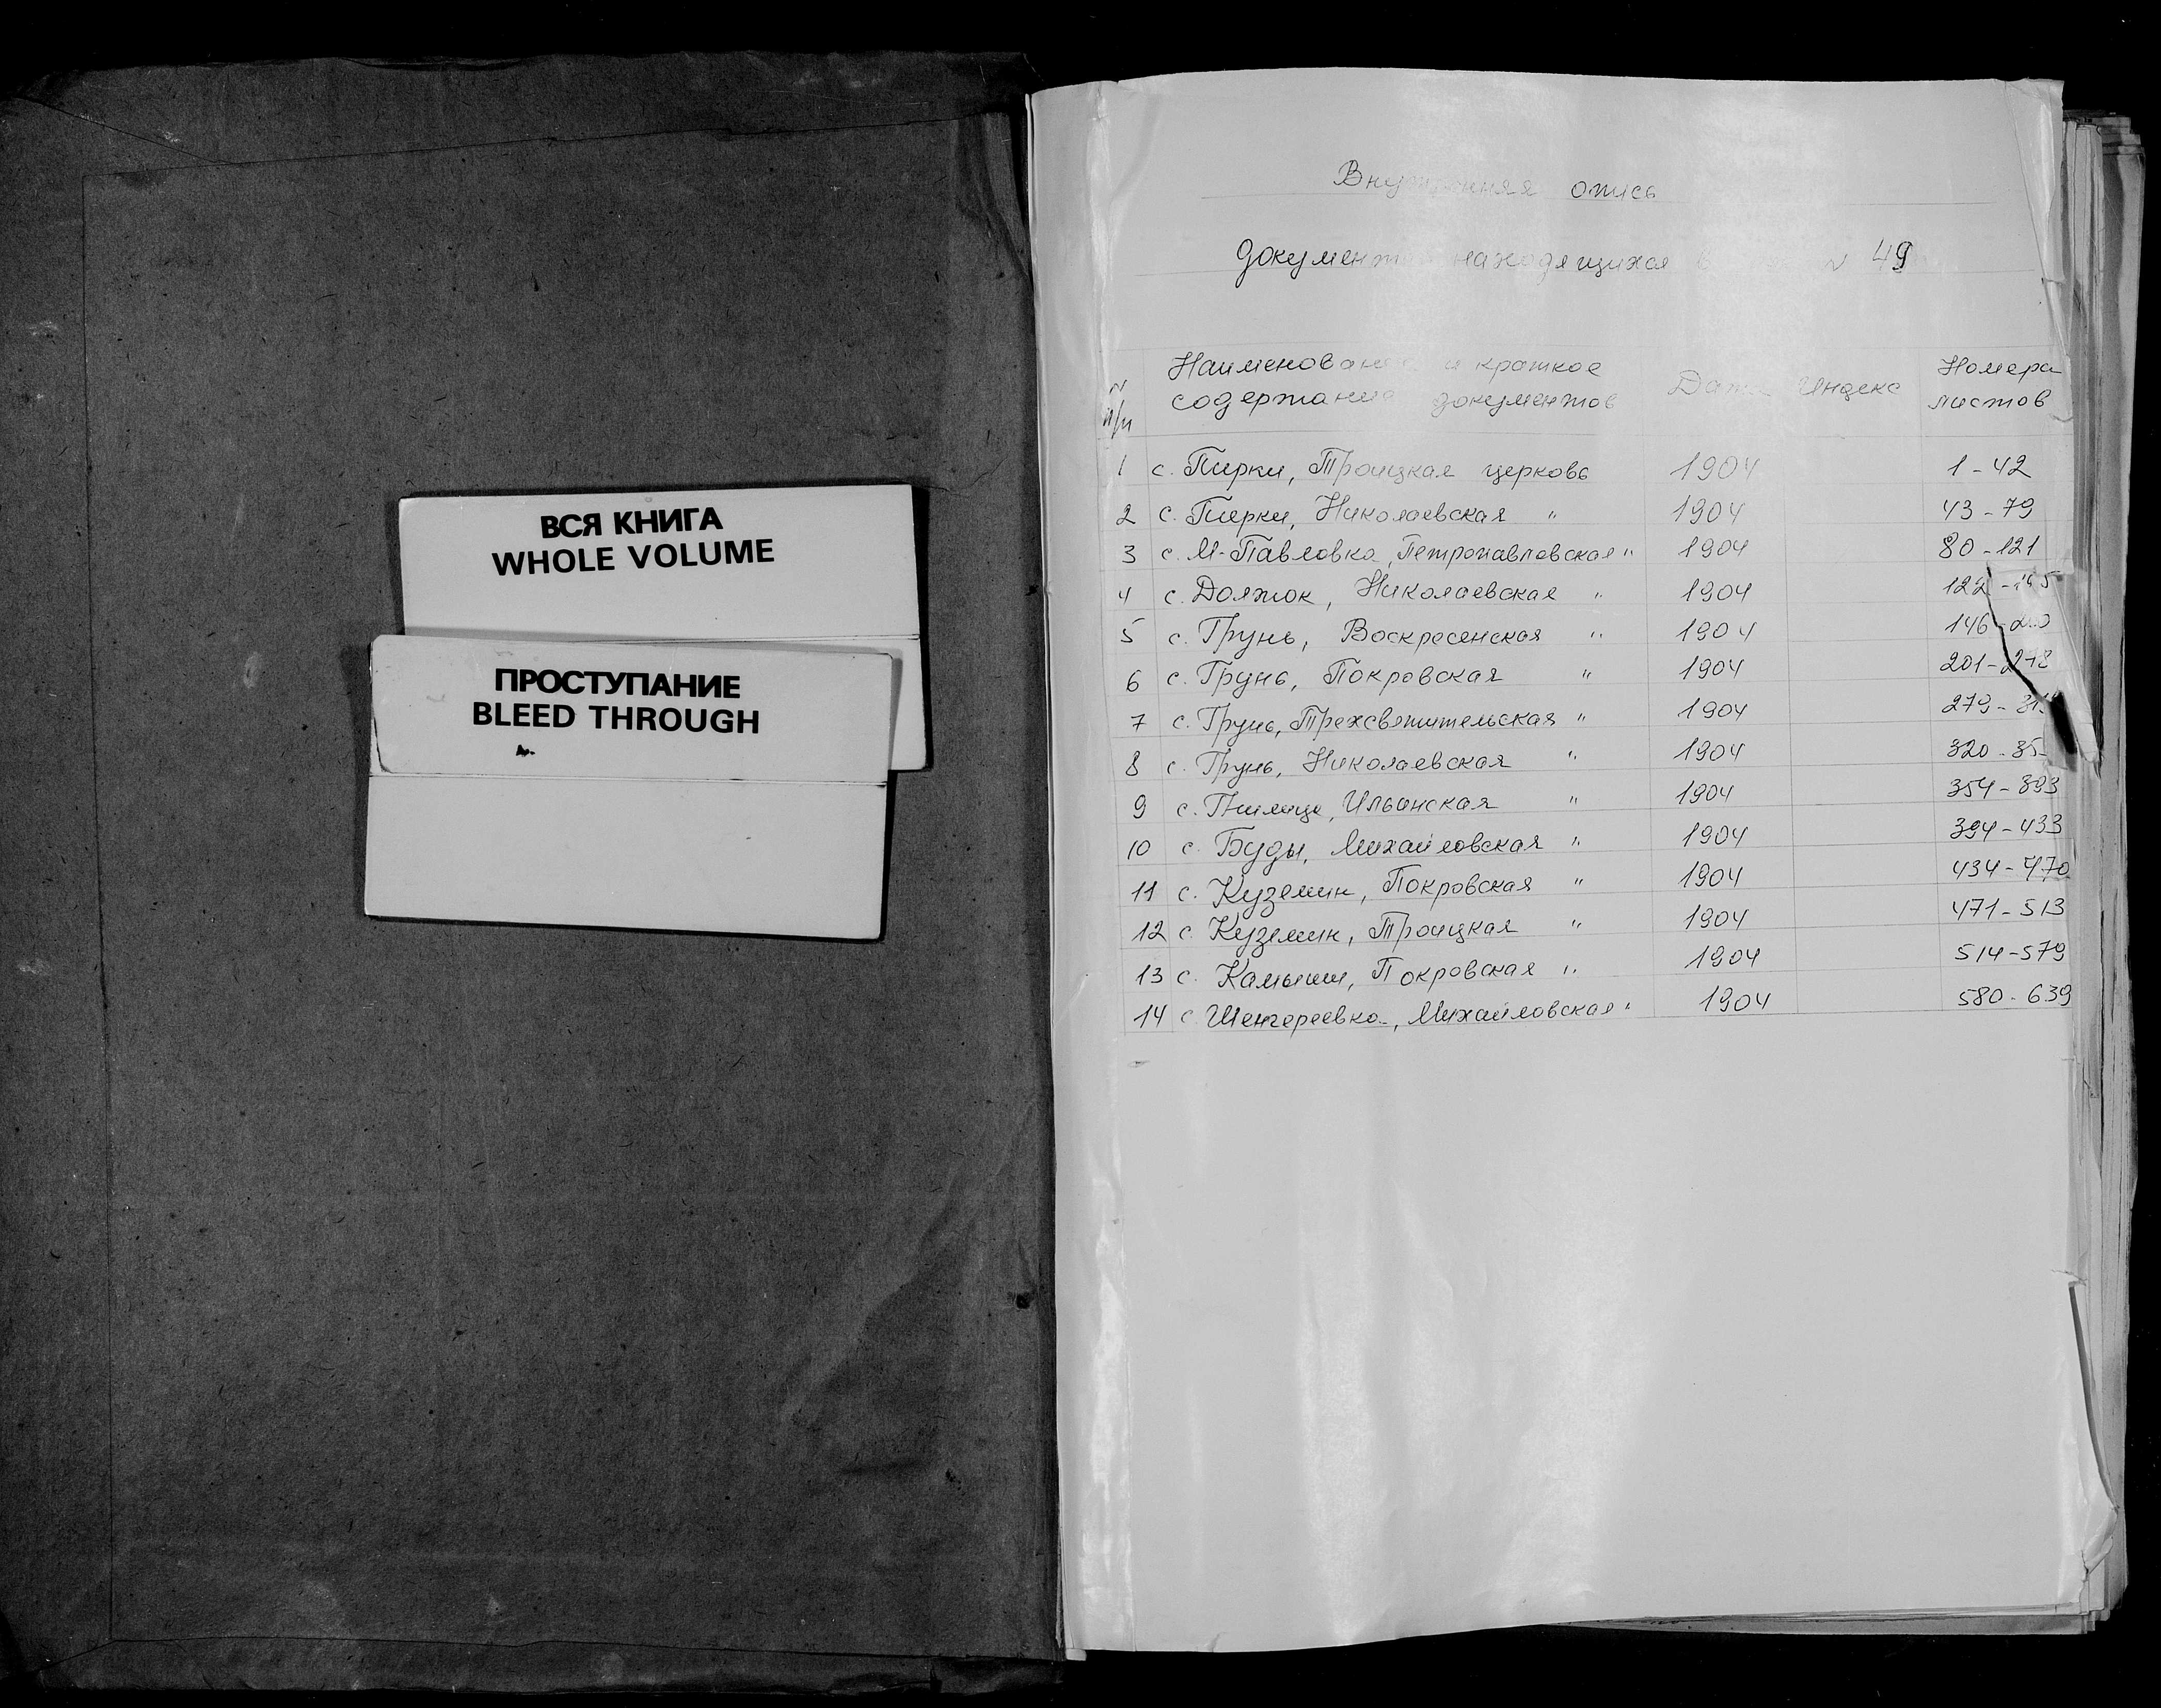 ВСЯ КНИГА
WHOLE VOLUME
ПРОСТУПАНИЕ
BLEED THROUGH
Внутренняя опись
документов находящихся в № 49
№ п/п Наименование и краткое содержание документов Дата Индекс Номера листов
1 с. Пирки, Троицкая церковь 1904 1-42
2 с. Пирки, Николаевская " 1904 43-79
3 с. М-Павловка, Петропавловская " 1904 80-121
4 с. Должок, Николаевская " 1904 122-145
5 с. Грунь, Воскресенская " 1904 146-200
6 с. Грунь, Покровская " 1904 201-278
7 с. Грунь, Трехсвятительская " 1904 279-
8 с. Грунь, Николаевская " 1904 320-
9 с. Ильинская " 1904 354-393
10 с. Буды, Михайловская " 1904 394-433
11 с. Куземин, Покровская " 1904 434-470
12 с. Куземин, Троицкая " 1904 471-513
13 с. Камыши, Покровская " 1904 514-579
14 с. Шенгереевка, Михайловская " 1904 580-639